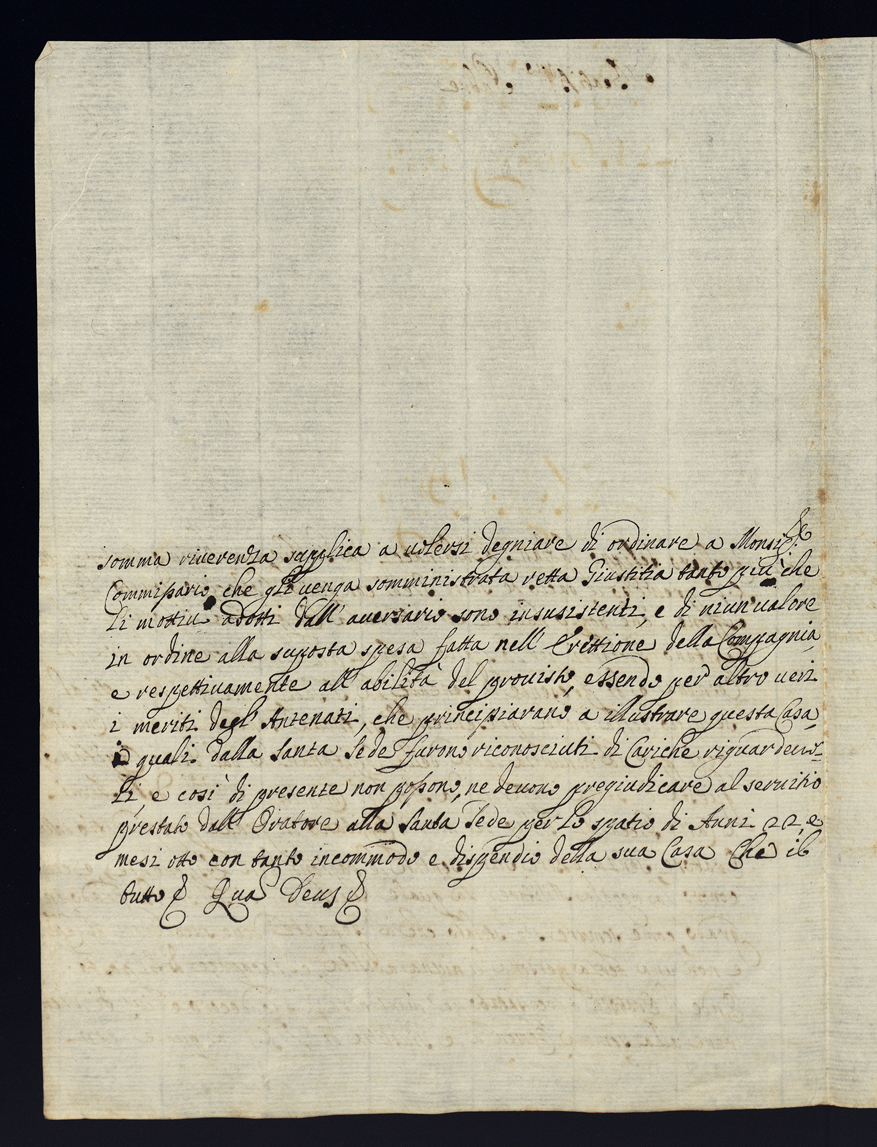 somma riverenza supplica a volersi degniare di ordinare a Monsig.re
Commissario che gli venga somministrata retta Giustitia tanto più che
li motivi adotti dall' aversario sono insusistenti, e di niun valore
in ordine alla suposta spesa fatta nell' Erettione della Compagnia,
e respettivamente all' abilità del provisto, essendo per altro veri
i meriti degl' Antenati, che principiarano a illustrare questa Casa,
i quali dalla Santa Sede furono riconosciuti di Cariche riguardevo=
li, e così di presente non possono, ne devono pregiudicare al servitio
prestato dall' Oratore alla Santa Sede per lo spatio di Anni 22, e
mesi otto con tanto incommodo e dispendio della sua Casa Che il
tutto Qua Deus